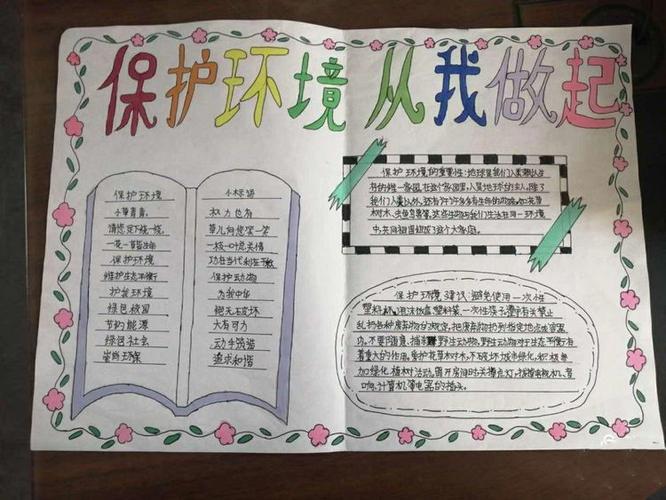 保护环境 从我做起
保护环境
小草青青，
请您足下绕一绕。
一花一草皆生命
保护环境
维护生态平衡
护我环境
绿色校园
节约能源
绿色社会
崇尚环保
小标语
权力也有
草儿向您笑一笑
一枝一叶总关情
功在当代利在千秋
保护动物
为我中华
绝无破坏
大有可为
动手筑防
追求和谐
保护环境的重要性：地球是我们人类赖以生
存的唯一家园，在这个家园里，人是地球的主人，除了
我们人类以外，还有许许多多有生命的动物，如花草
树木、虫鱼鸟兽等，这些生物与我们生活在同一环境
中，共同组成了这个大家庭。
保护环境建议：避免使用一次性
塑料杯、泡沫饭盒、塑料袋、一次性筷子，遵守有关禁止
乱扔各种废弃物的规定，把废弃物扔到指定地点或容器
内，不要随意捕杀野生动物，野生动物对于生态平衡有
着重大的作用。爱护花草树木，不破坏城市绿化，积极参
加绿化植树活动。离开房间时关掉点灯，拔掉电视机、音
响、计算机等电器的插头。